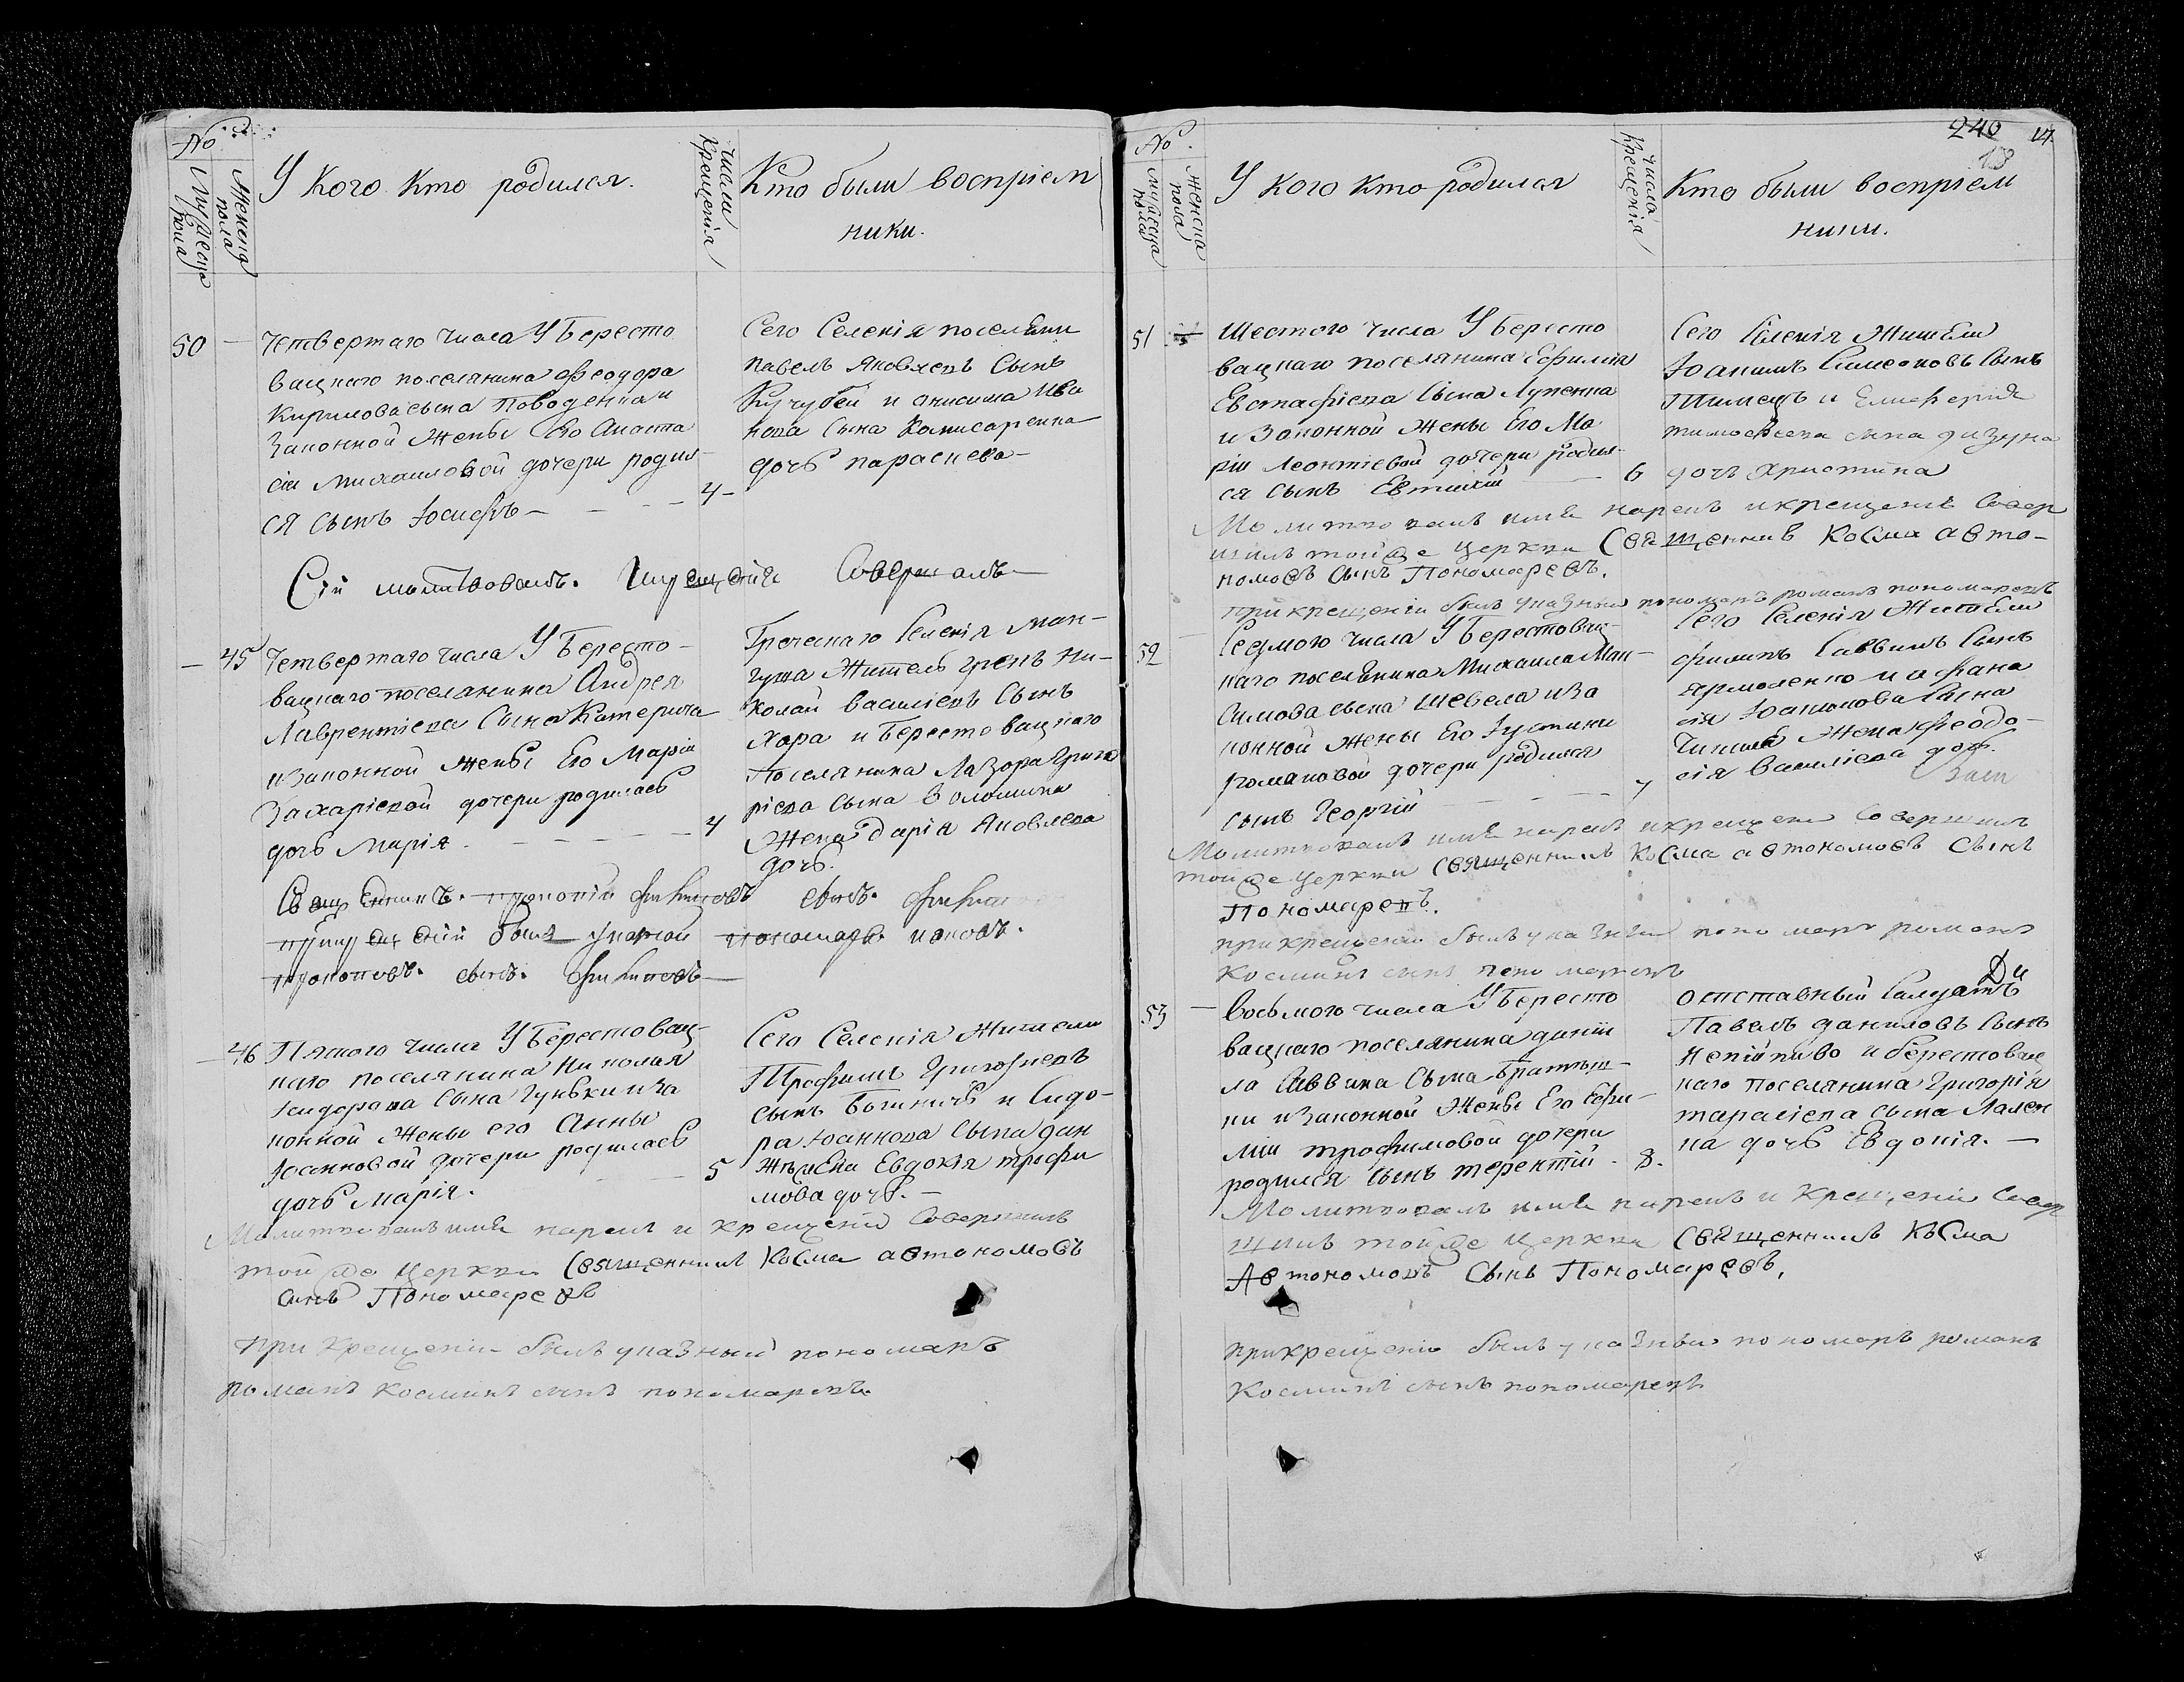 №
Мужеска пола
Женска пола
У кого кто родился.
числа Крещенія
Кто были воспріем
ники.
50
Четвертаго числа У Бересто
вацкаго поселянина Феодора
Кирилова сына
Законной жены Его Анаста
сіи Михаиловой дочери родил
ся сынъ Іосифъ
4
Сего Селенія поселяни
Павелъ Яковлевъ Сынъ
Кучубей и Онисима Ива
нова Сына Комисаренка
дочь Параскева
Сій молитвовалъ. Совершалъ
45
Четвертаго числа У Бересто-
вацкаго поселянина Андрея
Лаврентіева Сына Катерича
и законной жены Его Маріи
Захаріевой дочери родилась
дочь Марія.
4
Греческаго Селенія Ман-
гуша Житель грекъ Ни-
колай Василіевъ Сынъ
Хора и Берестовацкаго
Поселянина Лазора Григо
ріева Сына Волошина
Жена Дарія Яковлева
дочь.
Священникъ. Прокопій Филиповъ сынъ.
былъ указной пономарь
Прокоповъ. сынъ. Филиповъ
46
Пятого числа У Берестовац-
каго поселянина Николая
Исидорова Сына Гуньки и за
конной жены его Анны
Іоанновой дочери родилась
дочь Марія.
5
Сего Селенія Жители
Трофимъ Григорьевъ
сынъ и Сидо-
ра Іоаннова Сына
Жена Евдокія Трофи
мова дочь.
Молитвовалъ имя нарекъ и крещеніе Совершилъ
той же Церкви Священникъ Косма Автономовъ
Сынъ Пономаревъ
При Крещеніи былъ указный пономарь
Романъ Косминъ сынъ пономаревъ.
240
14.
13
№.
Мужеска пола
Женска пола
У кого кто родился
числа Крещенія
Кто были воспріем
ники.
51
Шестого числа У Бересто
вацкаго поселянина Ефимія
Евстафіева Сына Луценка
и Законной жены Его Ма
ріи Леонтіевой дочери родил-
ся сынъ Евтихій
6
Сего Селенія Жители
Іоакимъ Симеоновъ Сынъ
и Елиферія
Тимофеева сына
дочь Христина
Молитвовалъ имя нарекъ и крещеніе Совер
шилъ той же Церкви Священникъ Косма Авто-
номовъ Сынъ Пономаревъ.
при крещеніи былъ указный пономарь романъ пономаревъ
52
Седмого числа У Берестовац-
каго поселянина Михаила Мак-
симова сына Шевела и за
конной жены Его Іустины
Романовой дочери родился
сынъ Георгій
7
Сего Селенія Жители
Филипъ Саввинъ Сынъ
Ярмоленко и Афана
сія Сына
Жена Феодо-
сія Василіева доч.
Молитвовалъ имя нарекъ и крещеніе Совершилъ
той же Церкви Священникъ Косма Автономовъ Сынъ
Пономаревъ.
при крещеніи былъ указный пономарь романъ
Косминъ сынъ пономаревъ
53
Восьмого числа У Бересто
вацкаго поселянина Даніи
ла Саввина Сына
ки и Законной Жены Его Ефи-
міи Трофимовой дочери
родился сынъ Терентій.
8.
Отставный Салдатъ
Павелъ Даниловъ Сынъ
Непійпиво и Берестовац
каго поселянина Григорія
Тарасіева сына
на дочь Евдокія.
Молитвовалъ имя нарекъ и Крещеніе Совер
шилъ той же Церкви Священникъ Косма
Автономовъ Сынъ Пономаревъ.
при крещеніи былъ указный пономарь романъ
Косминъ сынъ пономаревъ